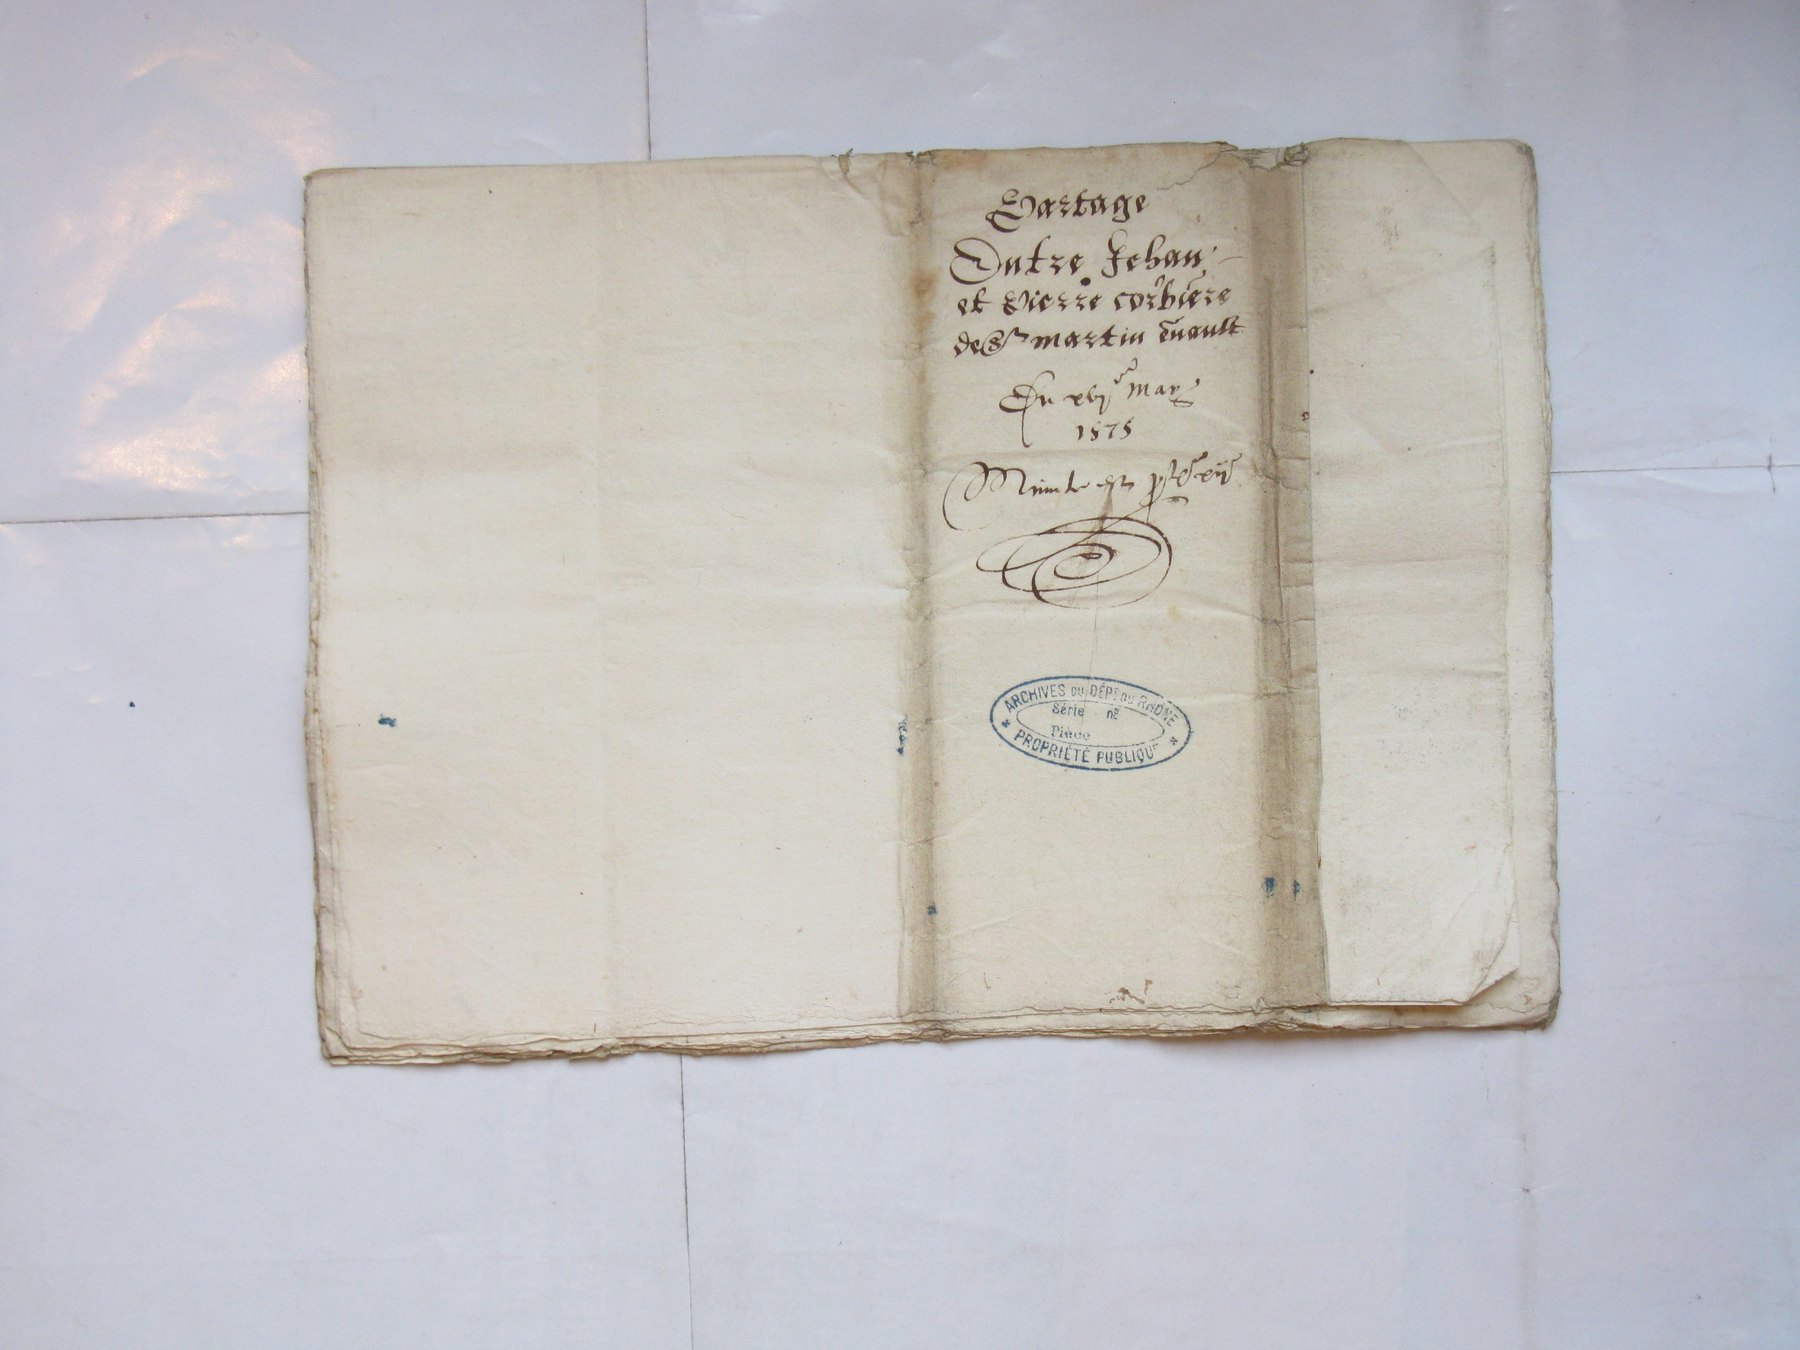 Partage
Entre Jehan
et Pierre corbiere
de St martin
Du xvj may
1575
ARCHIVES DU DÉPT DU RHÔNE
Série nº
Pièce
PROPRIÉTÉ PUBLIQUE